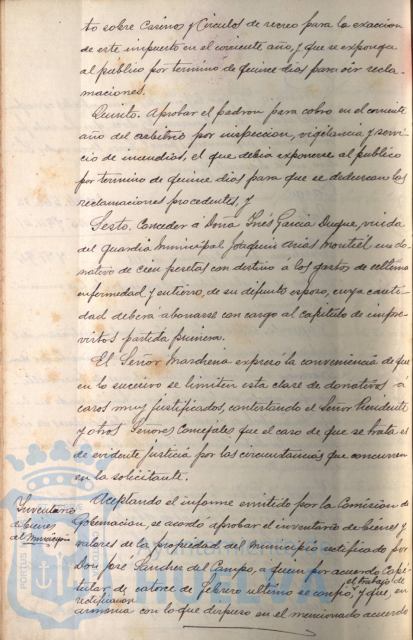 to sobre Casinos y Circulos de recreo para la exaccion
de este impuesto en el corriente año, y que se exponga
al publico por termino de quince dias para oir recla-
maciones.
Quinto. Aprobar el padron para cobro en el corriente
año del arbitrio por inspeccion, vigilancia y servi-
cio de incendios, el que debia exponerse al publico
por termino de quince dias para que se dedurcan las
reclamaciones procedentes, y
Sexto. Conceder á Doña Inés Garcia Duque, viuda
del guardia Municipal Joaquin Arias Montiel un do-
nativo de cien pesetas con destino á los gastos de ultima
enfermedad y entierro, de su difunto esposo, cuya canti-
dad deberá abonarse con cargo al capitulo de impre-
vistos partida primera.
El Señor Marchena expresó la conveniencia de que
en lo sucesivo se limiten esta clase de donativos a
casos muy justificados, contestando el Señor Presidente
y otros Señores Concejales que el caso de que se trata es
de evidente justicia por las circunstancias que concurren
en la solicitante.
Inventario
de bienes
del Municipio
Aceptando el informe emitido por la Comision de
Gobernacion, se acordó aprobar el inventario de bienes y
valores de la propiedad del Municipio rectificado por
Don José Sanchez del Campo, a quien por acuerdo Capi-
tular de catorce de febrero ultimo se confió el trabajo de
rectificacion, y que, en
armonia con lo dispuesto en el mencionado acuerdo